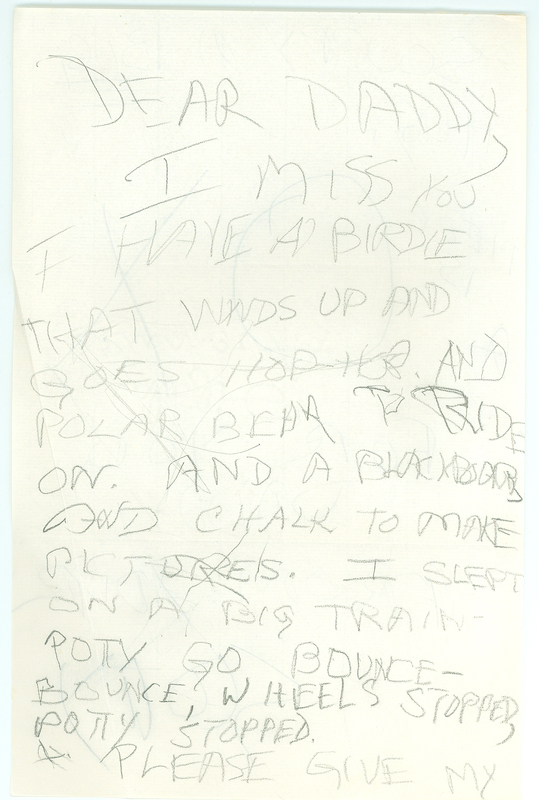 DEAR DADDY,
I MISS YOU
I HAVE A BIRDIE
THAT WINDS UP AND
GOES HOP-HOP. AND
POLAR BEAR TO RIDE
ON. AND A BLACKBOARD,
AND CHALK TO MAKE
PICTURES. I SLEPT
ON A BIG TRAIN-
POTY GO BOUNCE-
BOUNCE, WHEELS STOPPED,
POTTY STOPPED.
PLEASE GIVE MY